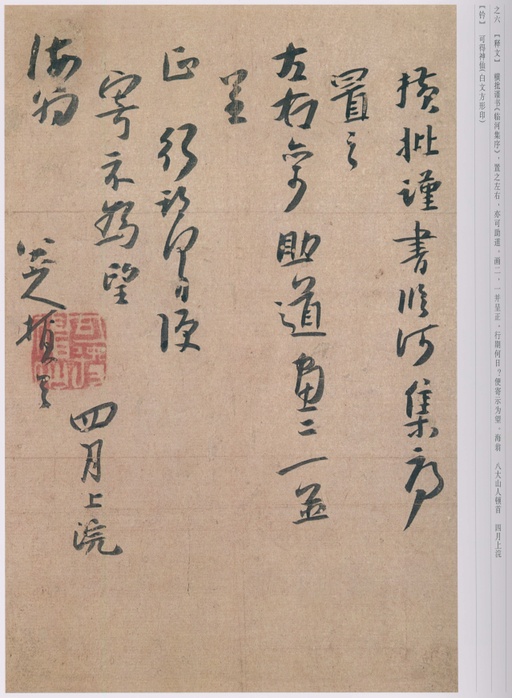 之六 【释文】 横批谨书《临河集序》，置之左右，亦可助道。画二，一并呈正。行期何日？便寄示为望。海翁 八大山人顿首 四月上浣
【钤】 可得神仙(白文方形印)
横批谨書临河集序
置之
左右亦可助道画二一並
呈
正 行期何日便
寄示為望
海翁
八大山人頓首
四月上浣
可得神仙